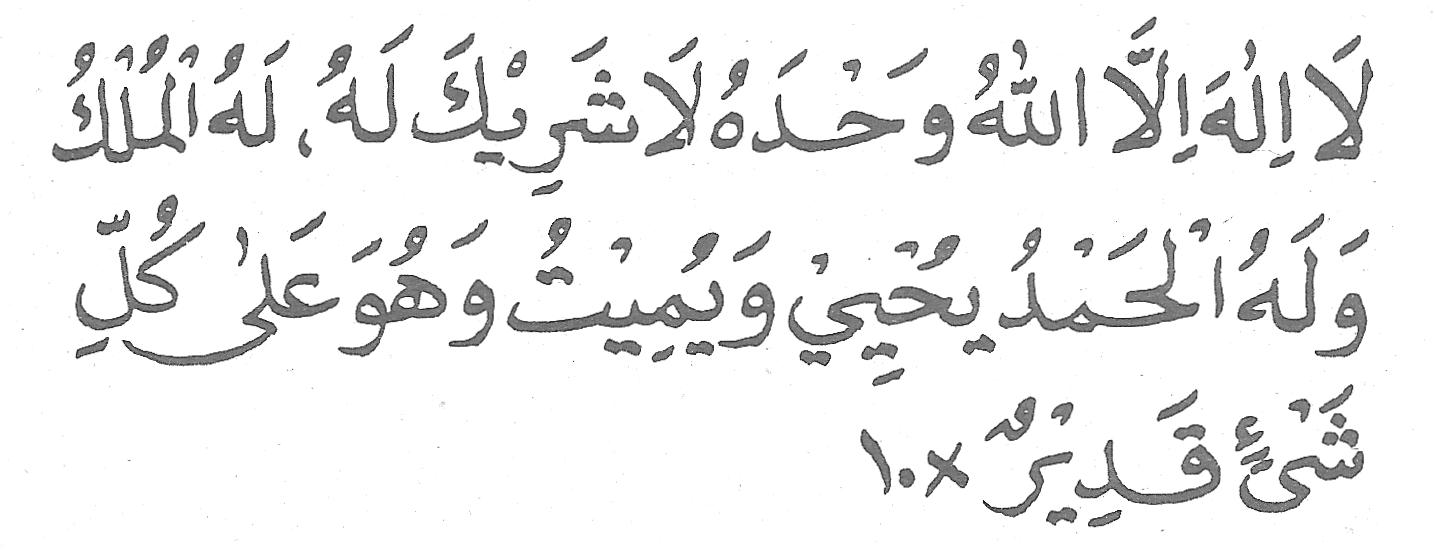 لَا اِلٰهَ اِلَّا اللّٰهُ وَحْدَهُ لَا شَرِيْكَ لَهُ، لَهُ الْمُلْكُ
وَلَهُ الْحَمْدُ يُحْيِيْ وَيُمِيْتُ وَهُوَ عَلٰى كُلِّ
شَيْئٍ قَدِيْرٌ ×١٠